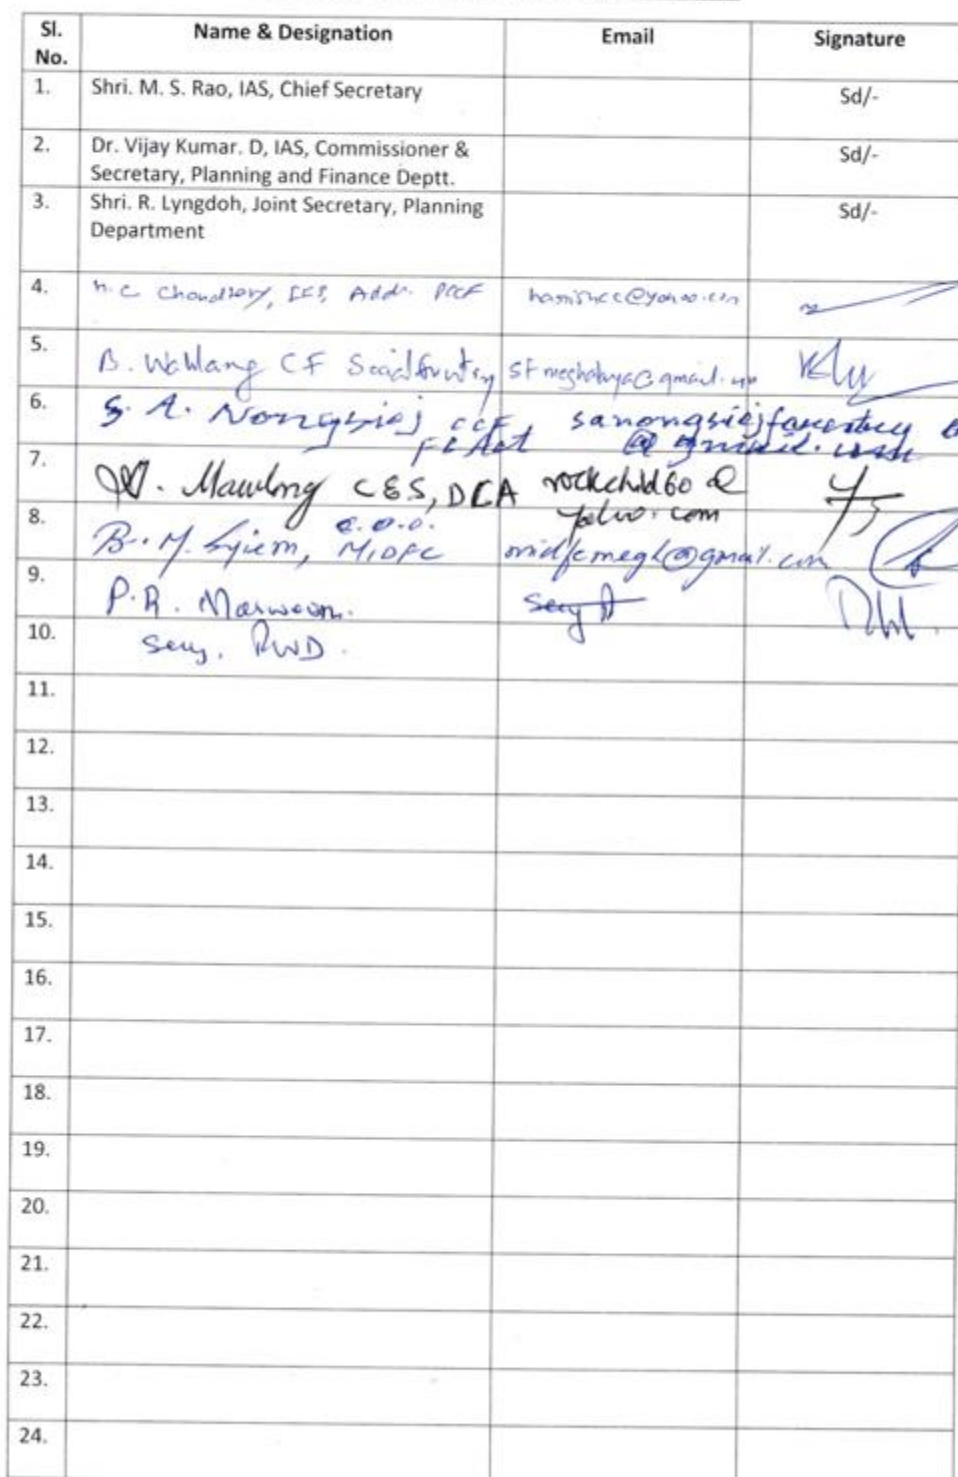 Sl. No. Name & Designation Email Signature
1. Shri. M. S. Rao, IAS, Chief Secretary Sd/-
2. Dr. Vijay Kumar. D, IAS, Commissioner &
Secretary, Planning and Finance Deptt. Sd/-
3. Shri. R. Lyngdoh, Joint Secretary, Planning
Department Sd/-
4. H.C. Chaudhary, IFS, Addl. PCCF
5. B. Wahlang CF Social forestry sfmeghalaya@gmail.com
6. S. A. Nongsiej CCF sanongsiejforestry
@gmail.com
7. Mawlong CES, DCA rockchild60@
yahoo.com
8. B. M. Syiem, C.O.O.
MIDFC midfcmegh@gmail.com
9. P.R. Marwein.
10. Secy, PWD.
11.
12.
13.
14.
15.
16.
17.
18.
19.
20.
21.
22.
23.
24.